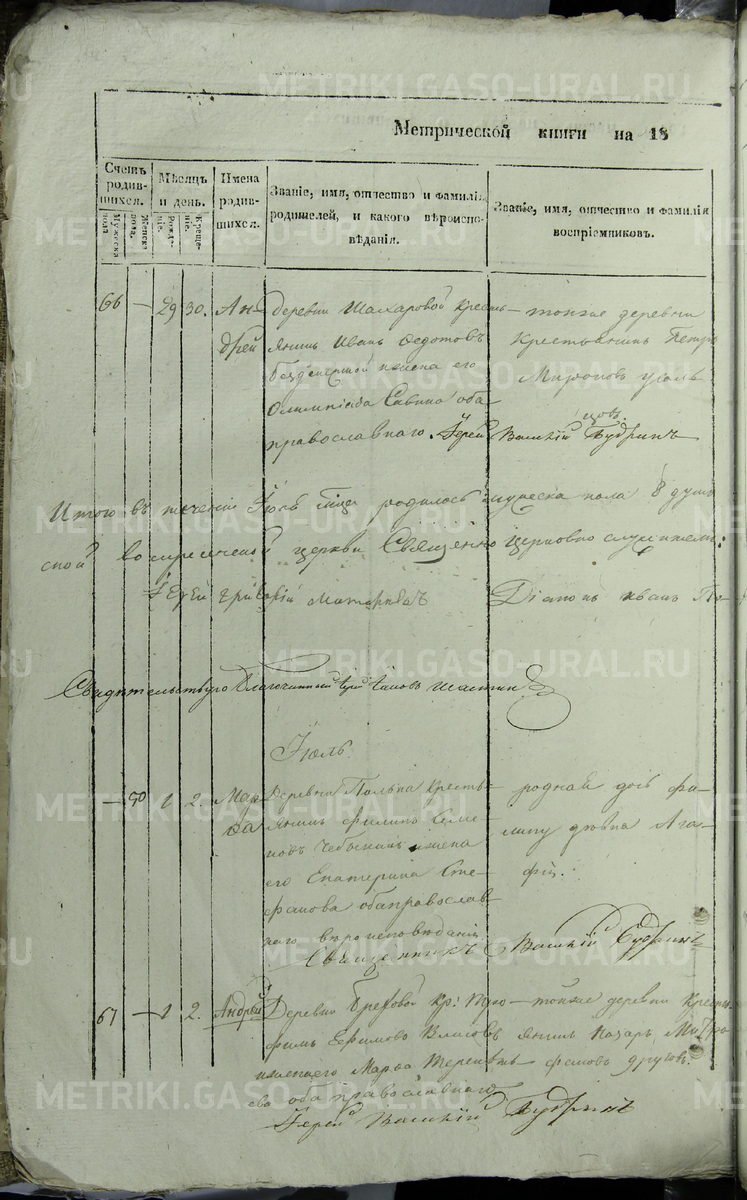 METRIKI.GASO-URAL.RU
Метрической книги на 18
Счетъ родившихся.
Мужеска пола
Женска пола.
Мѣсяцъ и день.
Рожденіе.
Крещеніе.
Имена родившихся.
Званіе, имя, отчество и фамилія
родителей, и какого вѣроиспо-
вѣданія.
Званіе, имя, отчество и фамилія
воспріемниковъ.
66 — 29 30. Ан-
дрей
деревни Шахаровой кресть-
янинъ Иванъ Федотовъ
жена его
Олимпіада Савина оба
православнаго. Іерей
тойже деревни
Крестьянинъ Петръ
Мироновъ
цовъ.
Василій Будринъ
Итого въ теченіи родилось мужеска пола 8 душъ
церкви Священно церковно служители:
Іерей Григорій
Діаконъ Иванъ По-
Свидѣтельствуро Благочинный
Іюль.
— 50 1 2. Мар-
ѳа
Деревни кресть-
янинъ Филипъ Семе-
новъ жена
его Екатерина Сте-
фанова оба православ-
наго вѣроисповѣданія
Священникъ
родная дочь Фи-
липу дѣвка Ага-
фія.
Василій Будринъ
67 — 1 2. Андрей
Деревни Кр: Тро-
фимъ Ефимовъ
жена его Марѳа Теренть-
ева оба православнаго
Іерей Василій Будринъ
тойже деревни Кресть-
янинъ Назаръ Митро-
фановъ